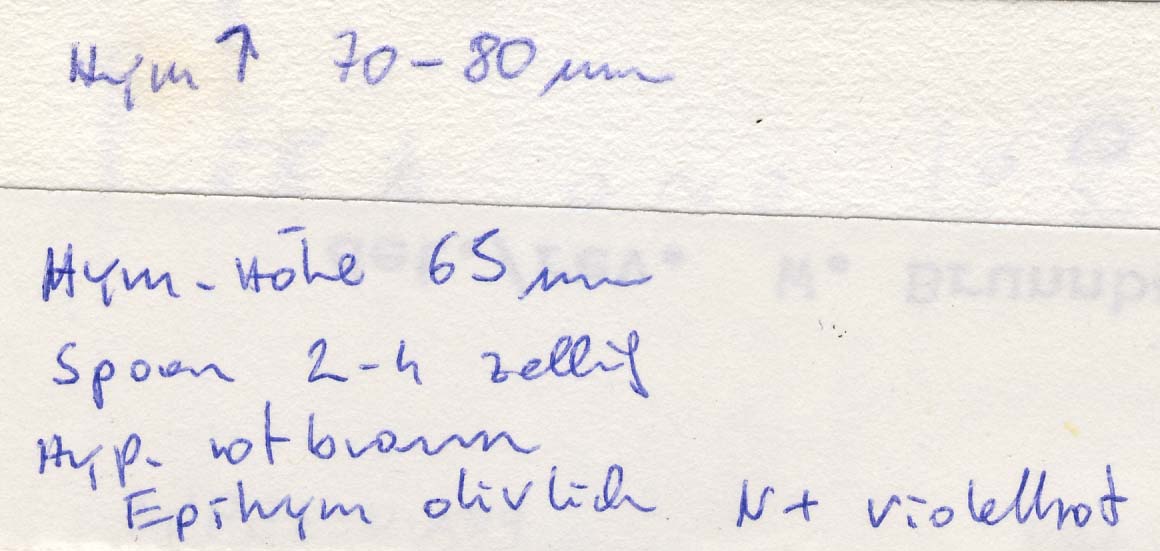 Hym ↑ 70-80 µm
Hym.-Höhe 65 µm
Sporen 2-4 zellig
Hyp. rotbraun
Epihym olivlich N+ violettrot